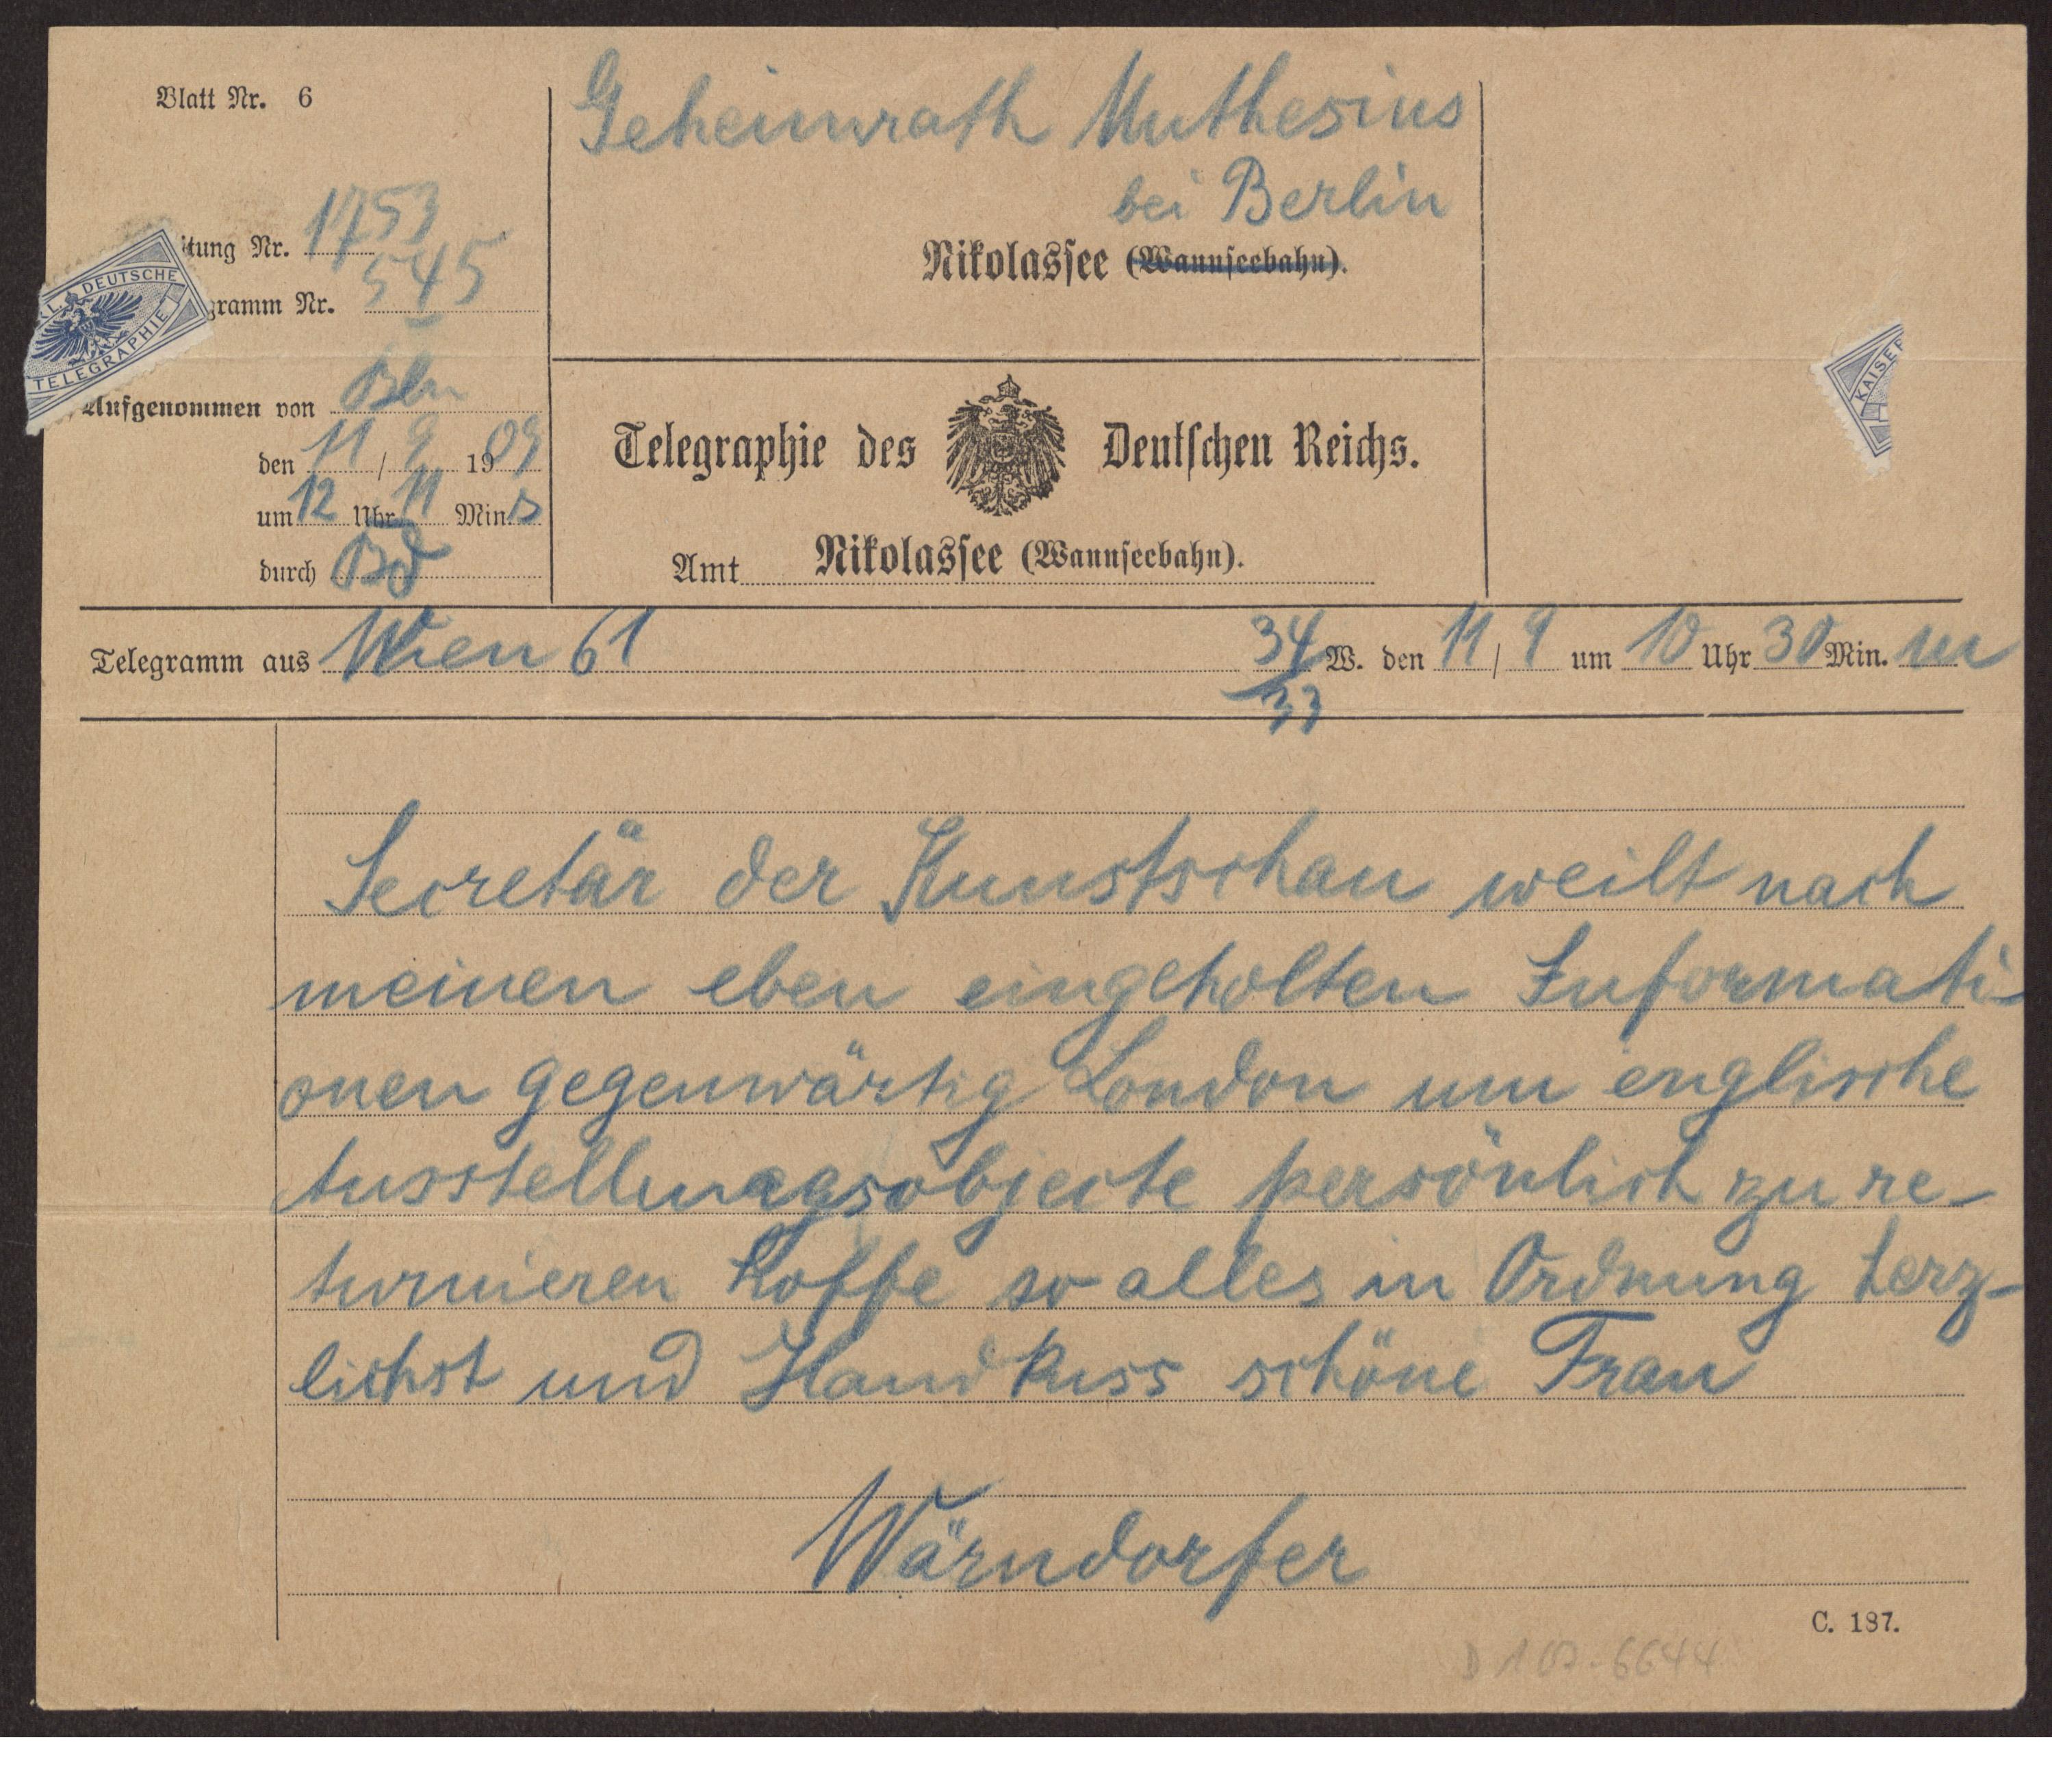 Blatt Nr. 6
Geheimrath Muthesius
bei Berlin
Nikolassee (Wannseebahn).
itung Nr. 1753
gramm Nr. 545
Aufgenommen von Bln
den 11 / 9 1909
um 12 Uhr 11 Min. s
durch
KL. DEUTSCHE
TELEGRAPHIE
KAISER
Telegraphie des Deutschen Reichs.
Amt Nikolassee (Wannseebahn).
Telegramm aus Wien 61 34 W. den 11 / 9 um 10 Uhr 30 Min. m
33
Secretär der Kunstschau weilt nach
meinen eben eingeholten Informati-
onen gegenwärtig London um englische
Ausstellungsobjecte persönlich zu re-
turnieren hoffe so alles in Ordnung herz-
lichst und Handkuss schöne Frau
Wärndorfer
C. 187.
D 102-6644